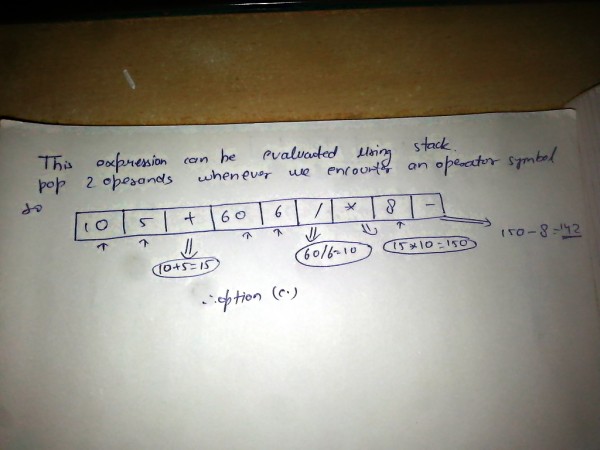 This expression can be evaluated using stack.
pop 2 operands whenever we encounter an operator symbol
so
10 5 + 60 6 / * 8 -
10+5=15 60/6=10 15*10=150 150-8=142
∴option (c.)